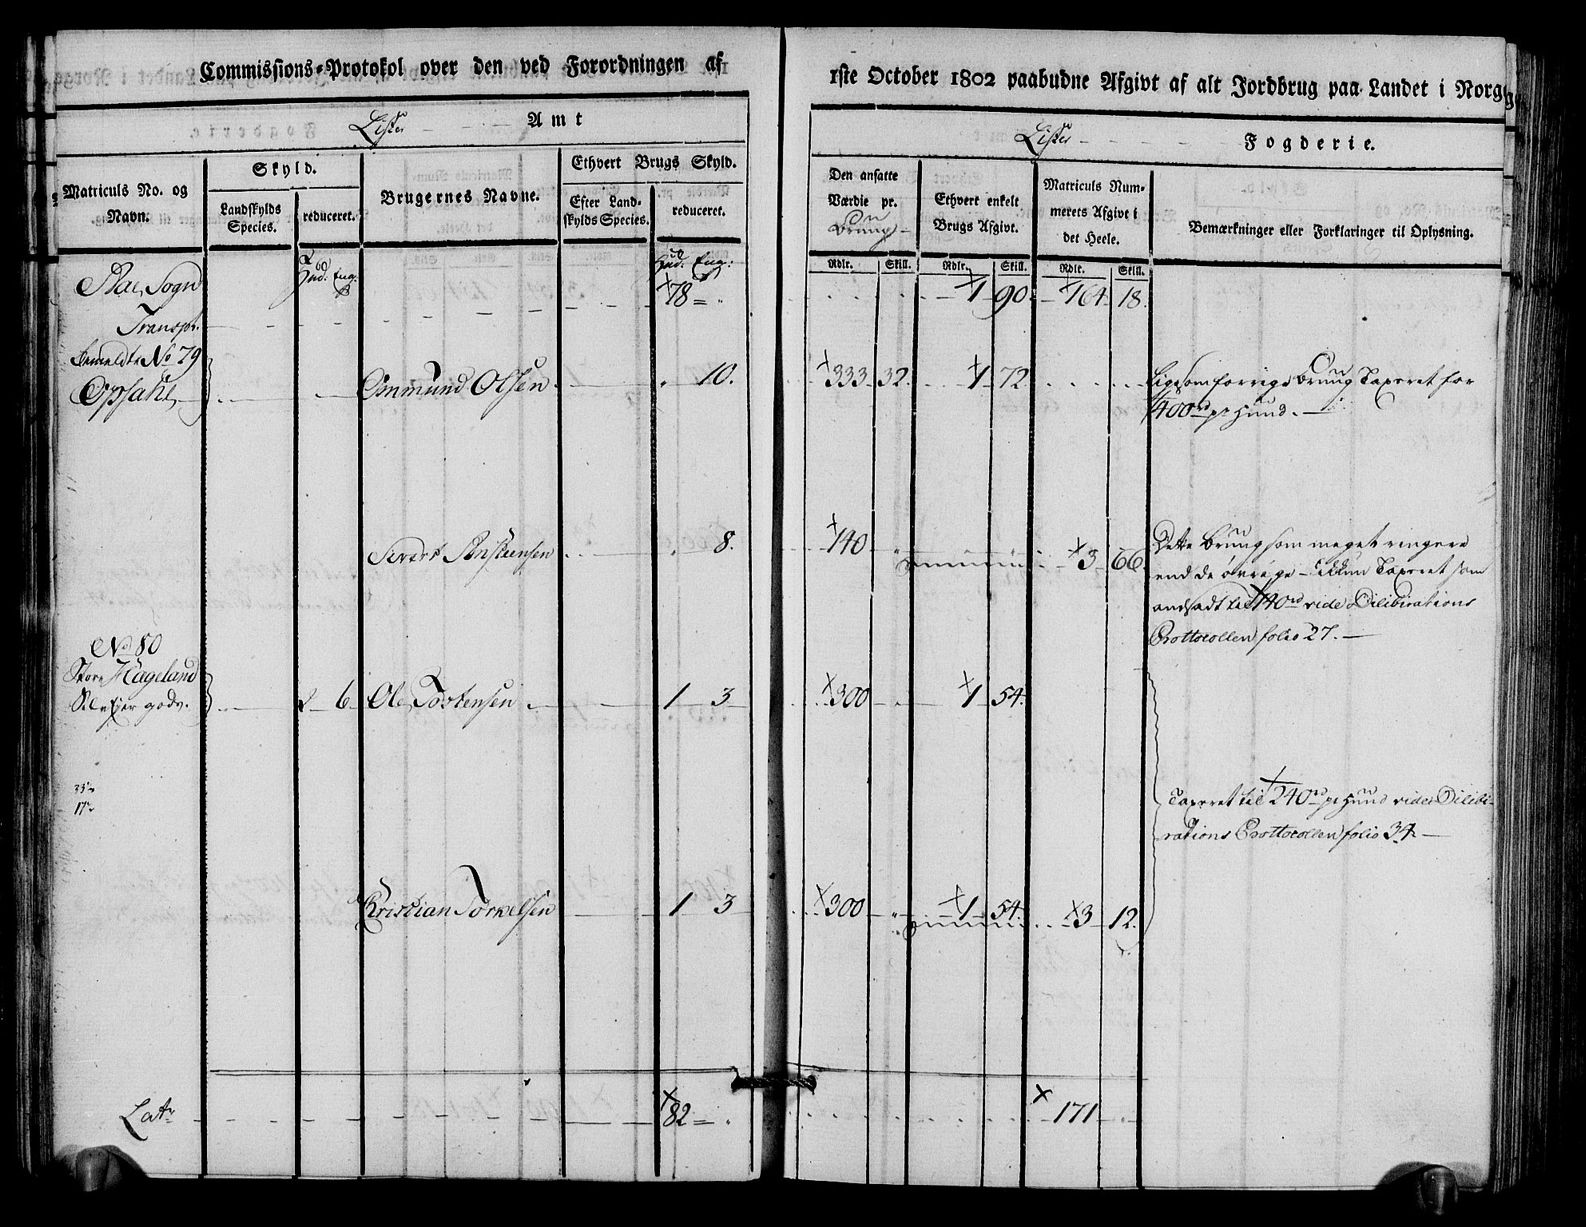 Commissions-Protokol over den ved Forordningen af
1ste October 1802 paabudne Afgivt af alt Jordbrug paa Landet i Norge
Lister Amt
Lister Fogderie.
Matriculs No. og Navn.
Skyld.
Landskylds Species.
reduceret.
Brugernes Navne.
Ethvert Brugs Skyld.
Efter Landskylds Species.
reduceret.
Den ansatte Værdie pr.
Ethvert enkelt Brugs Afgivt.
Matriculs Nummerets Afgivt i det Heele.
Bemærkninger eller Forklaringer til Oplysning.
Rdlr. Skill. Rdlr. Skill. Rdlr. Skill.
Hud. Eng: Hud. Eng:
Sogn 78 = 1 90. 164 18.
Transpr.
No 79
Opsahl Ommund Olsen 10. 333 32. 1 72 Ligesom forrige Bruug Taxeret for
400 rd pr Hund.
Sivert 8. 140 3 66 Dette Bruug som meget ringere
end de øvrige Taxeret som
andsadt til 140 rd vide Dilibirations
Prottocollen folio 27.
No 80
Store Hageland
2 6 Ole Tostensen 1 3 300 1 54
35
17
Taxeret til 240 rd pr Hund vide Dilibi-
rations Prottocollen folio 34
Kristian Torkelsen 1 3 300 1 54. 3 12.
Latr 82 = 171